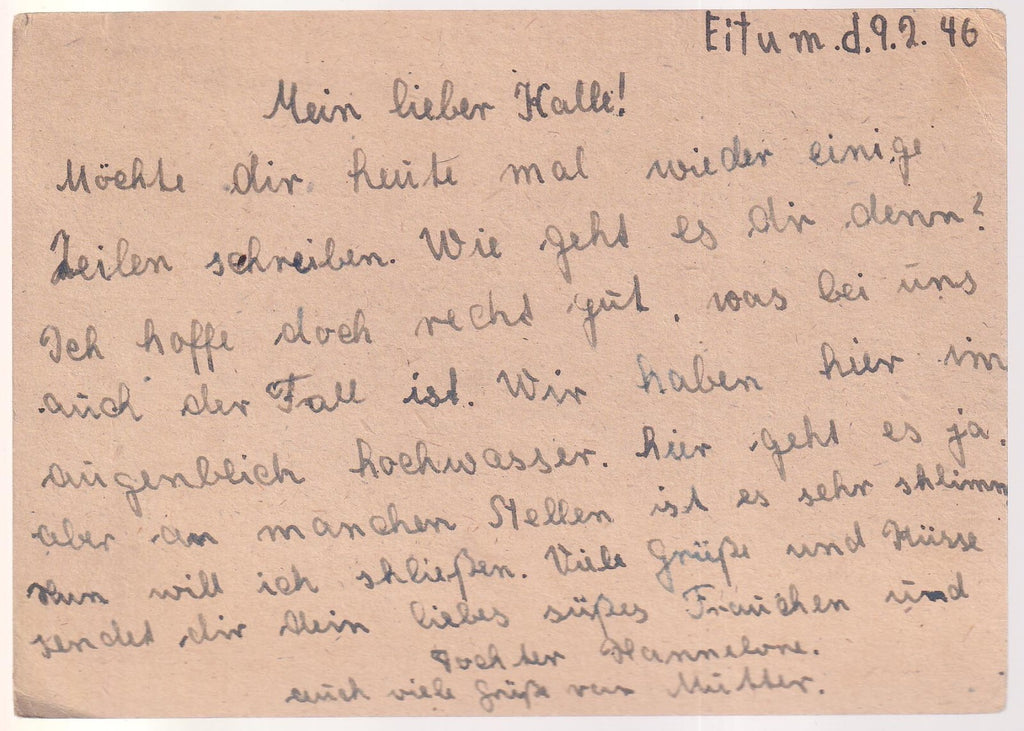 Eitum.d.9.2.46
Mein lieber Kalle!
Möchte dir heute mal wieder einige
Zeilen schreiben. Wie geht es dir denn?
Ich hoffe doch recht gut, was bei uns
auch der Fall ist. Wir haben hier im
augenblich hochwasser. hier geht es ja.
aber an manchen Stellen ist es sehr shlimm
Nun will ich shließen. Viele Grüße und Küsse
sendet dir dein liebes süßes Frauchen und
Tochter Hannelore.
auch viele Grüße von Mutter.